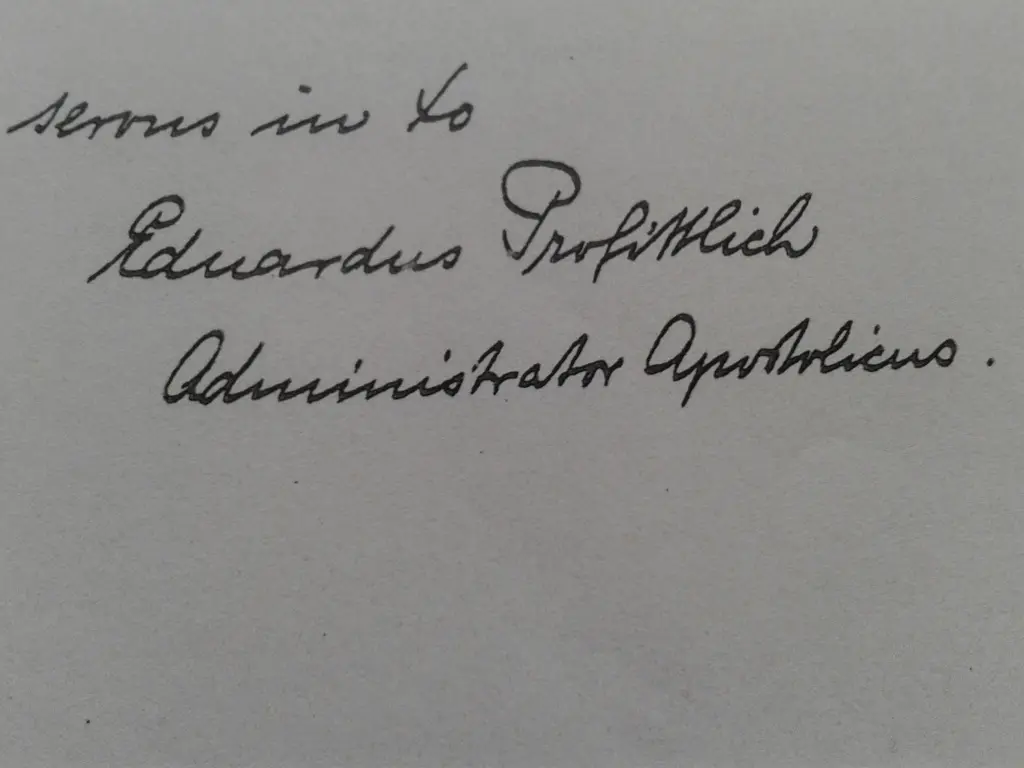 servus in Xo
Eduardus Profittlich
Administrator Apostolicus.